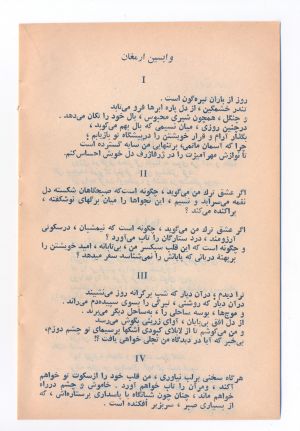 واپسین ارمغان
I
روز از باران تیره‌گون است .
تندر خشمگین ، از دل پاره ابرها فرو می‌تابد
و جنگل ، همچون شیری محبوس ، یال خود را تکان می‌دهد .
درچنین روزی ، میان نسیمی که بال بهم می‌کوبد ،
بگذار آرام و قرار خویشتن را درپیشگاه تو بازیابم ؛
چرا که آسمان ماتمی ، برتنهایی من سایه گسترده است
تا نوازش مهرآمیزت را در ژرفاژرف دل خویش احساس‌کنم.
II
اگر عشق ترك من می‌گوید ، چگونه است‌که صبحگاهان شکسته دل
نغمه می‌سراید و نسیم ، این نجواها را میان برگهای نوشکفته ،
پراکنده می‌کند ؟
اگر عشق ترك من می‌گوید ، چگونه است‌که نیمشبان ، درسکوتی
آرزومند ، درد ستارگان را تاب می‌آورد ؟
و چگونه است‌که این قلب سبکسر من ، بی‌تابانه ، امید خویشتن را
برپهنهٔ دریائی که پایانش را نمی‌شناسد سفر می‌دهد ؟
III
ترا دیدم ، درآن دیار که شب برکرانه روز می‌نشیند
درآن دیار که روشنی ، تیرگی را بسوی سپیده‌دم می‌راند ،
و موج‌ها ، بوسه ساحلی را ، به‌ساحل دیگر می‌برند .
از دل افق بی‌پایان ، آوای زرینی بگوش می‌رسد
و من می‌کوشم تا از لابلای کبودی اشکها برسیمای تو چشم دوزم،
بی‌خبر که آیا در دیدگاه من تجلی خواهی یافت ؟!
IV
هرگاه سخنی برلب نیاوری ، من قلب خود را ازسکوت تو خواهم
آکند ، ومرآن را تاب خواهم آورد . خاموش و چشم درراه
خواهم ماند ، چنان چون شبانگاه با پاسداری پرستاره‌اش ، که
از بسیاری صبر ، سربزیر افکنده است .